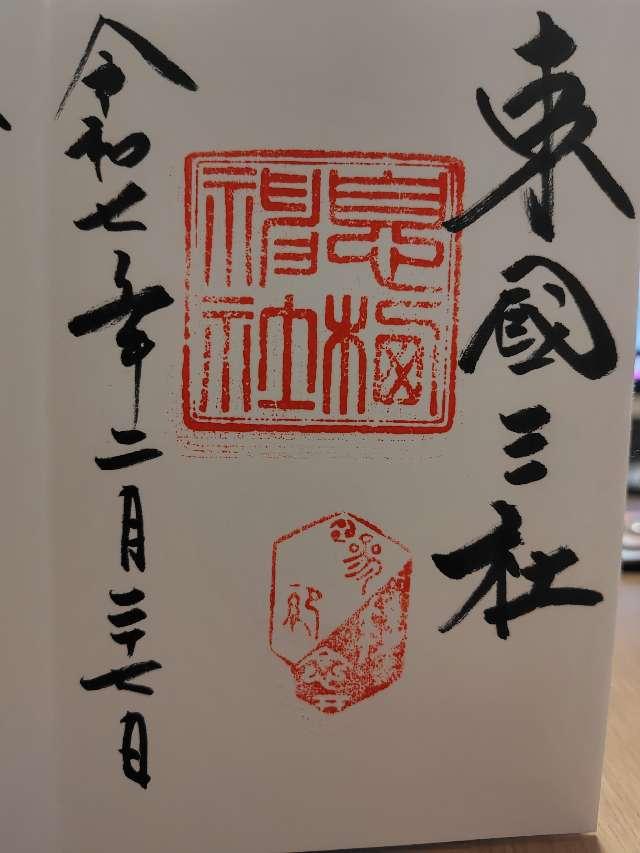 東國三社
息栖
神社
令和七年二月二十七日